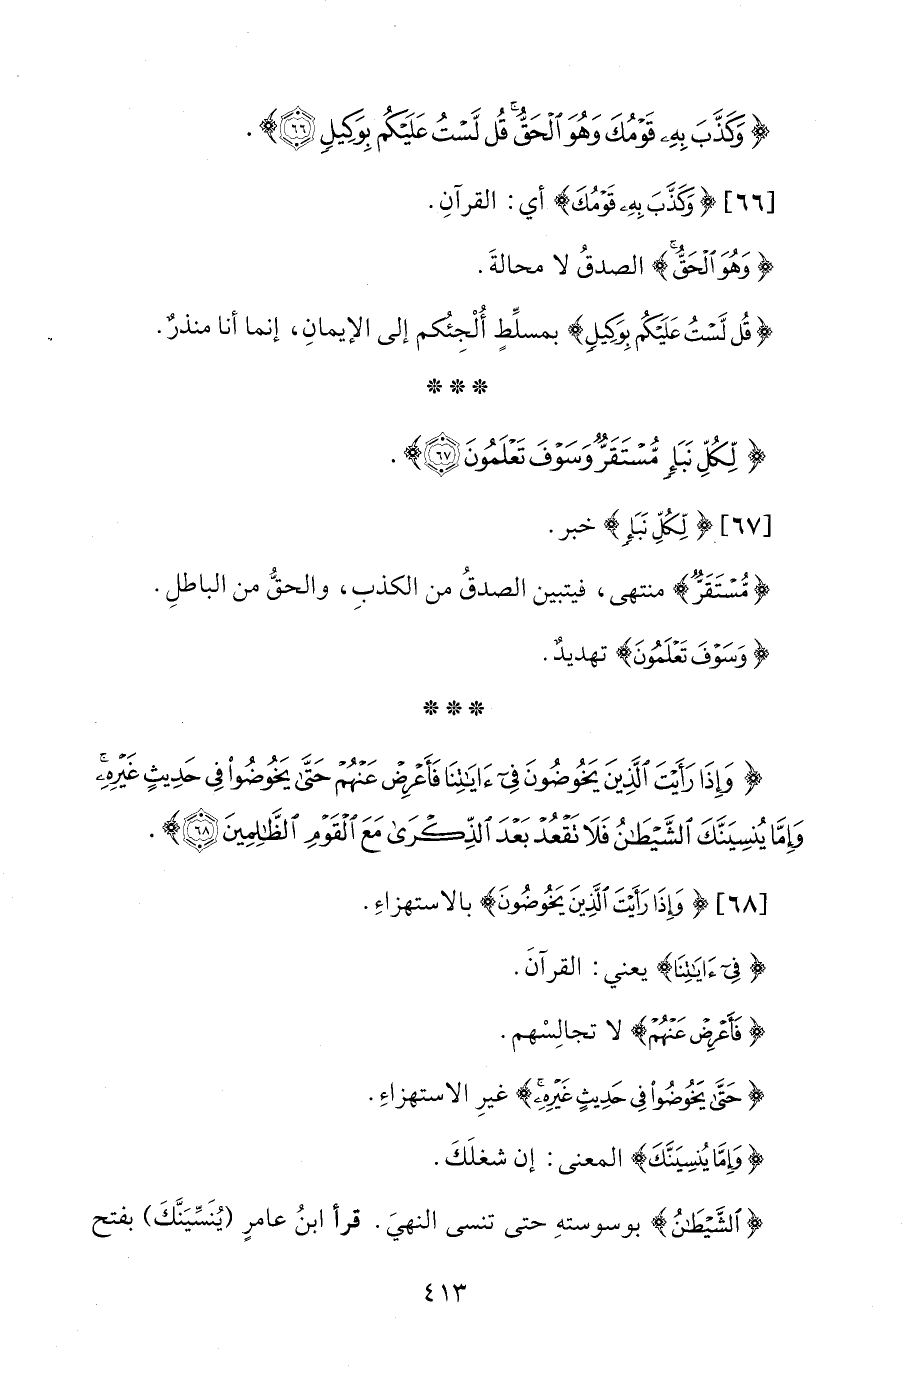 ﴿ وَكَذَّبَ بِهِۦ قَوْمُكَ وَهُوَ ٱلْحَقُّ ۚ قُل لَّسْتُ عَلَيْكُم بِوَكِيلٍ ۝٦٦ ﴾ .
[٦٦] ﴿ وَكَذَّبَ بِهِۦ قَوْمُكَ ﴾ أي : القرآنِ .
﴿ وَهُوَ ٱلْحَقُّ ۚ ﴾ الصدقُ لا محالةَ .
﴿ قُل لَّسْتُ عَلَيْكُم بِوَكِيلٍ ﴾ بمسلِّطٍ أُلْجِئُكم إلى الإيمانِ ، إنما أنا منذرٌ .
* * *
﴿ لِّكُلِّ نَبَإٍ مُّسْتَقَرٌّ وَسَوْفَ تَعْلَمُونَ ۝٦٧ ﴾ .
[٦٧] ﴿ لِّكُلِّ نَبَإٍ ﴾ خبر .
﴿ مُّسْتَقَرٌّ ﴾ منتهى ، فيتبين الصدقُ من الكذبِ ، والحقُّ من الباطلِ .
﴿ وَسَوْفَ تَعْلَمُونَ ﴾ تهديدٌ .
* * *
﴿ وَإِذَا رَأَيْتَ ٱلَّذِينَ يَخُوضُونَ فِىٓ ءَايَٰتِنَا فَأَعْرِضْ عَنْهُمْ حَتَّىٰ يَخُوضُوا۟ فِى حَدِيثٍ غَيْرِهِۦ ۚ
وَإِمَّا يُنسِيَنَّكَ ٱلشَّيْطَٰنُ فَلَا تَقْعُدْ بَعْدَ ٱلذِّكْرَىٰ مَعَ ٱلْقَوْمِ ٱلظَّٰلِمِينَ ۝٦٨ ﴾ .
[٦٨] ﴿ وَإِذَا رَأَيْتَ ٱلَّذِينَ يَخُوضُونَ ﴾ بالاستهزاءِ .
﴿ فِىٓ ءَايَٰتِنَا ﴾ يعني : القرآنَ .
﴿ فَأَعْرِضْ عَنْهُمْ ﴾ لا تجالِسْهم .
﴿ حَتَّىٰ يَخُوضُوا۟ فِى حَدِيثٍ غَيْرِهِۦ ۚ ﴾ غيرِ الاستهزاءِ .
﴿ وَإِمَّا يُنسِيَنَّكَ ﴾ المعنى : إن شغلَكَ .
﴿ ٱلشَّيْطَٰنُ ﴾ بوسوستهِ حتى تنسى النهيَ . قرأ ابنُ عامرٍ (يُنَسِّيَنَّكَ) بفتح
٤١٣